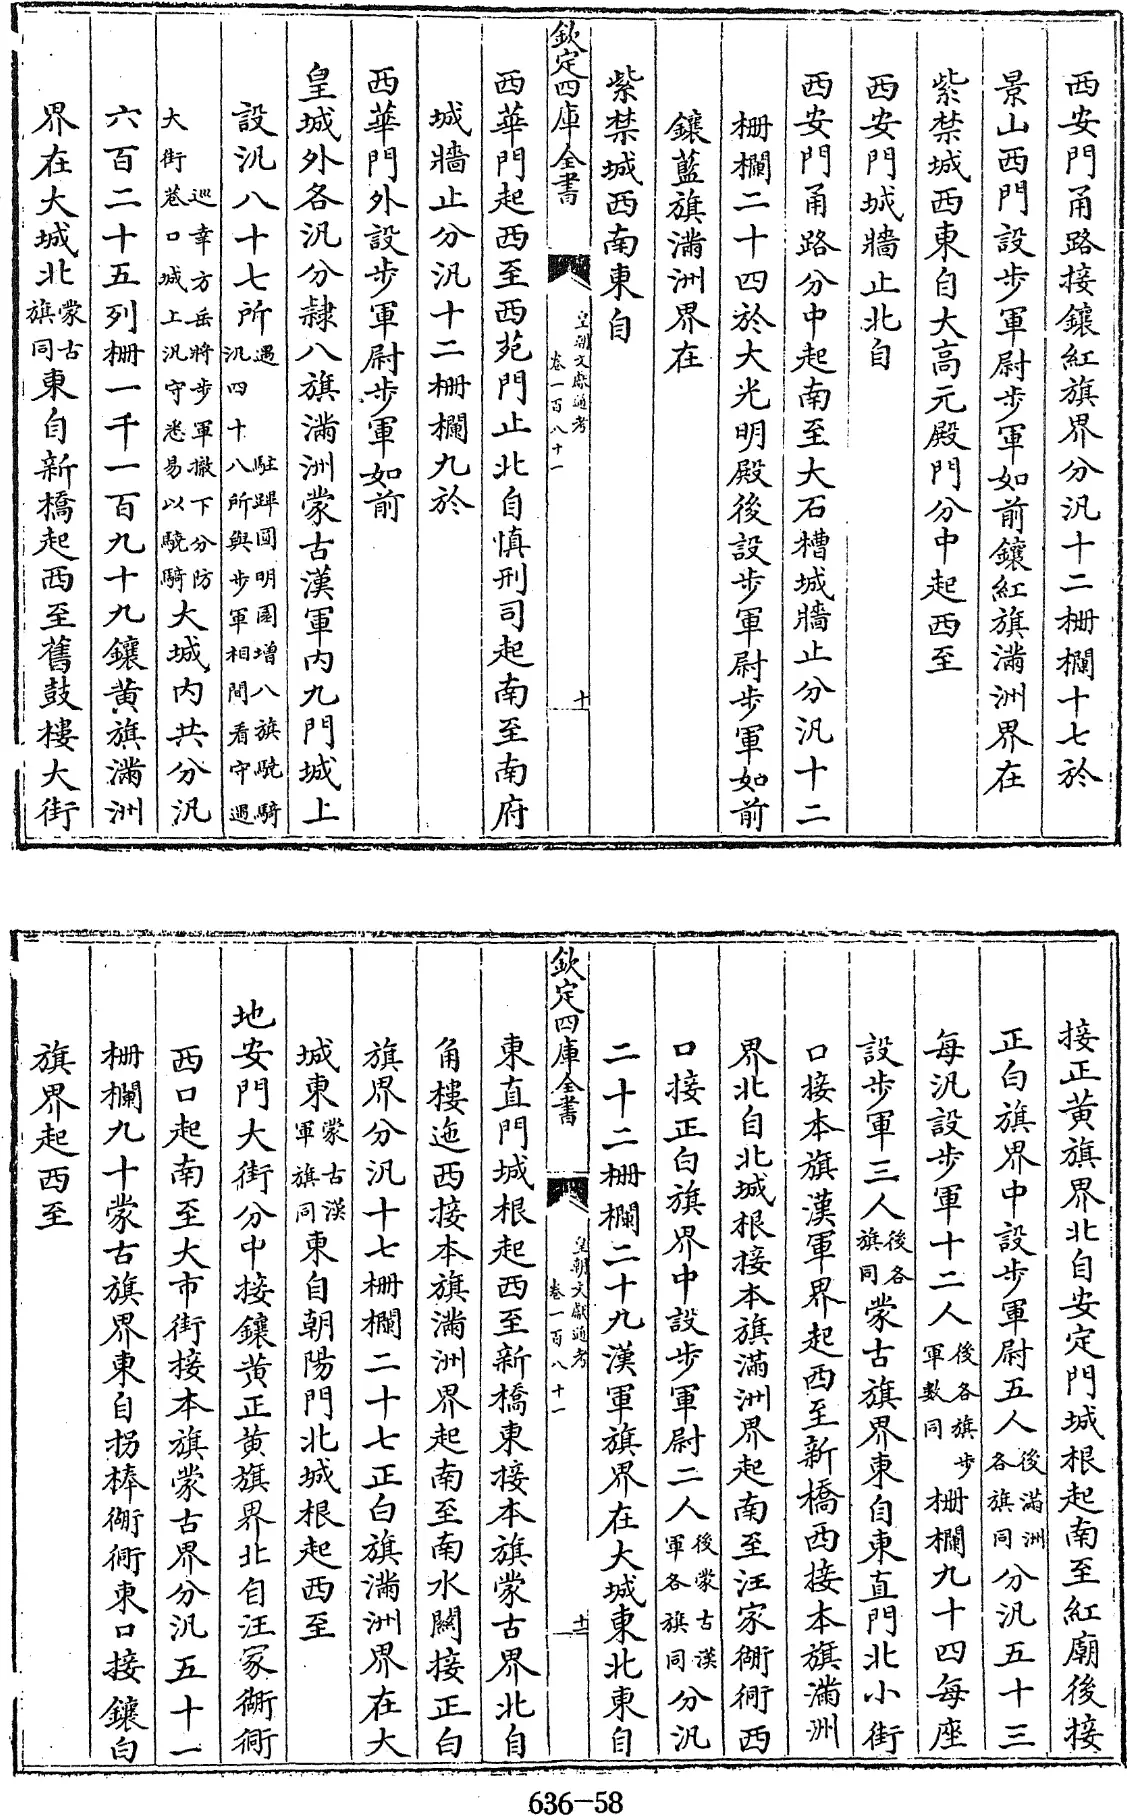 西安門甬路接鑲紅旗界分汛十二柵欄十七於
景山西門設步軍尉步軍如前鑲紅旗滿洲界在
紫禁城西東自大高元殿門分中起西至
西安門城牆止北自
西安門甬路分中起南至大石槽城牆止分汛十二
柵欄二十四於大光明殿後設步軍尉步軍如前
鑲藍旗滿洲界在
紫禁城西南東自
欽定四庫全書
皇朝文獻通考
卷一百八十一
十
西華門起西至西苑門止北自慎刑司起南至南府
城牆止分汛十二柵欄九於
西華門外設步軍尉步軍如前
皇城外各汛分隸八旗滿洲蒙古漢軍内九門城上
設汛八十七所遇駐蹕圓明園增八旗驍騎汛四十八所與步軍相間看守遇
巡幸方岳將步軍撤下分防大街巷口城上汛守悉易以驍騎大城内共分汛
六百二十五列柵一千一百九十九鑲黄旗滿洲
界在大城北蒙古旗同東自新橋起西至舊鼓樓大街
接正黄旗界北自安定門城根起南至紅廟後接
正白旗界中設步軍尉五人後滿洲各旗同分汛五十三
每汛設步軍十二人後各旗步軍數同柵欄九十四每座
設步軍三人後各旗同蒙古旗界東自東直門北小街
口接本旗漢軍界起西至新橋西接本旗滿洲
界北自北城根接本旗滿洲界起南至汪家衚衕西
口接正白旗界中設步軍尉二人後蒙古漢軍各旗同分汛
二十二柵欄二十九漢軍旗界在大城東北東自
欽定四庫全書
皇朝文獻通考
卷一百八十一
十一
東直門城根起西至新橋東接本旗蒙古界北自
角樓迤西接本旗滿洲界起南至南水關接正白
旗界分汛十七柵欄二十七正白旗滿洲界在大
城東蒙古漢軍旗同東自朝陽門北城根起西至
地安門大街分中接鑲黄正黄旗界北自汪家衚衕
西口起南至大市街接本旗蒙古界分汛五十一
柵欄九十蒙古旗界東自拐棒衚衕東口接鑲白
旗界起西至
636-58